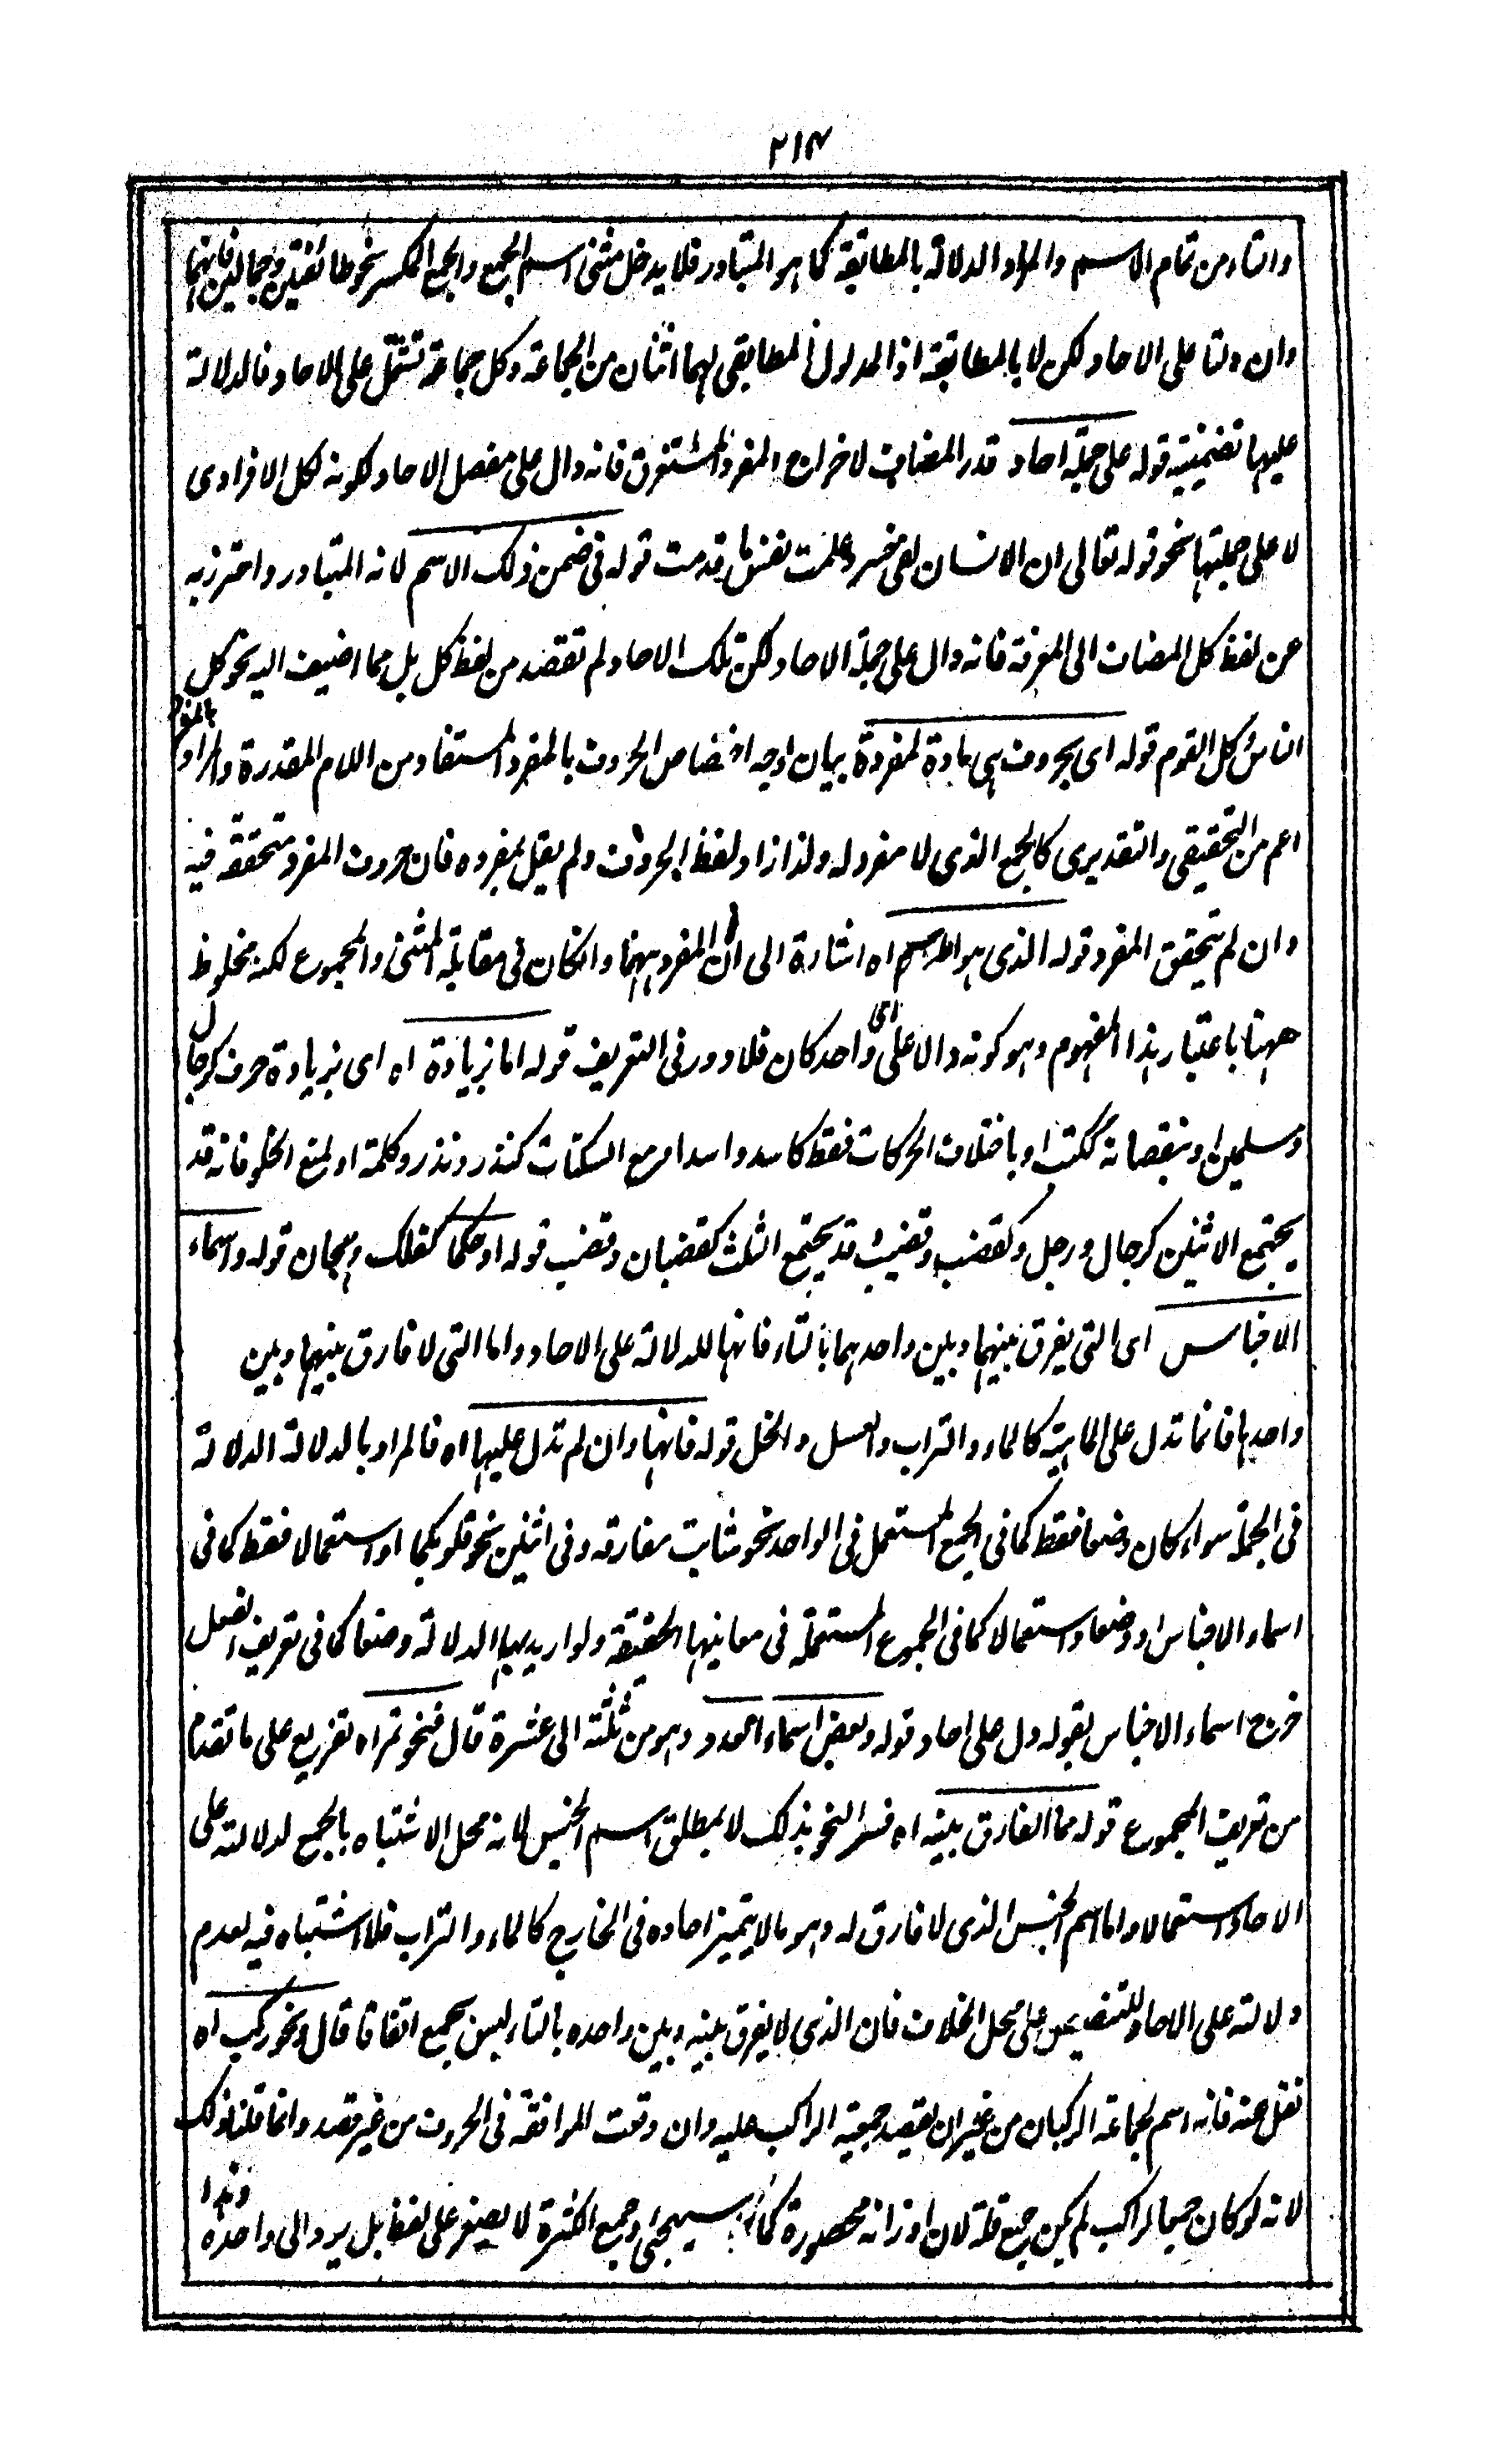 ٢١٤
والتاء من تمام الاسم والمراد الدلالة بالمطابقة كما هو المتبادر فلا يدخل مثنى اسم الجمع والجمع المكسر نحو طائفتين وجمالين فانهما
وان دلتا على الاحاد لكن لا بالمطابقة اذ المدلول المطابقى لهما اثنان من الجماعة وكل جماعة تشتمل على الاحاد فالدلالة
عليها تضمنية قوله على جملة احاد قدر المضاف لاخراج المفرد المستغرق فانه دال على مفصل الاحاد لكونه لكل الافرادى
لا على جملتها نحو قوله تعالى ان الانسان لفى خسر وعلمت نفس ما قدمت قوله فى ضمن ذلك الاسم لانه المتبادر واحترز به
عن لفظ كل المضاف الى المعرفة فانه دال على جملة الاحاد لكن تلك الاحاد لم تقصد من لفظ كل بل مما اضيف اليه نحو كل
الناس وكل القوم قوله اى بحروف هى مادة لمفردة بيان لوجه اختصاص الحروف بالمفرد المستفاد من اللام المقدرة والمراد بالمفرد
اعم من التحقيقى والتقديرى كالجمع الذى لا مفرد له ولذا زاد لفظ الحروف ولم يقل بمفرده فان حروف المفرد متحققة فيه
وان لم يتحقق المفرد قوله الذى هو الاسم اه اشارة الى ان المفرد ههنا وان كان فى مقابلة المثنى والمجموع لكنه ملحوظ
ههنا باعتبار هذا المفهوم وهو كونه دالا على واحد اى واحد كان فلا دور فى التعريف قوله اما بزيادة اه اى بزيادة حرف كرجال
ومسلمين او بنقصانه ككتب او باختلاف الحركات فقط كاسد واسد او مع السكنات كنذر ونذر وكلمة او لمنع الخلو فانه قد
يجتمع الاثنين كرجال ورجل وكقضب وقضيب وقد يجتمع الثلث كقضبان وقضيب قوله او حكما كفلك وهجان قوله واسماء
الاجناس اى التى يفرق بينها وبين واحدها بالتاء فانها للدلالة على الاحاد واما التى لا فارق بينها وبين
واحدها فانما تدل على الماهية كالماء والتراب والعسل والخل قوله فانها وان لم تدل عليها اه فالمراد بالدلالة الدلالة
فى الجملة سواء كان وضعا فقط كما فى الجمع المستعمل فى الواحد نحو شابت مفارقه وفى اثنين نحو قلوبكما او استعمالا فقط كما فى
اسماء الاجناس او وضعا واستعمالا كما فى الجموع المستعملة فى معانيها الحقيقة ولو اريد بها الدلالة وضعا كما فى تعريف الفعل
خرج اسماء الاجناس بقوله دل على احاد قوله وبعض اسماء العدد وهو من ثلثة الى عشرة قال فنحو تمر اه تفريع على ما تقدم
من تعريف المجموع قوله مما الفارق بينه اه فسر النحو بذلك لا بمطلق اسم الجنس لانه محل الاشتباه بالجمع لدلالته على
الاحاد استعمالا واما اسم الجنس الذى لا فارق له وهو ما لا يتميز احاده فى الخارج كالماء والتراب فلا اشتباه فيه لعدم
دلالته على الاحاد وللتنصيص على محل الخلاف فان الذى لا يفرق بينه وبين واحده بالتاء ليس بجمع اتفاقا قال ونحو ركب اه
نقل عنه فانه اسم لجماعة الركبان من غير ان يقصد جمعية الراكب عليه وان وقعت الموافقة فى الحروف من غير قصد وانما قلنا ذلك
لانه لو كان جمعا لراكب لم يكن جمع قلة لان اوزانه محصورة كما سيجئ وجمع الكثرة لا يصغر على لفظ بل يرد الى واحده وهذا